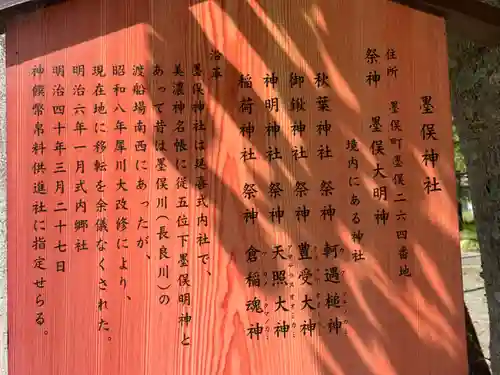 墨俣神社
住所　墨俣町墨俣二六四番地
祭神　墨俣大明神
境内にある神社
秋葉神社　祭神　軻遇槌神
御鍬神社　祭神　豊受大神
神明神社　祭神　天照大神
稲荷神社　祭神　倉稲魂神
沿革
墨俣神社は延喜式内社で、
美濃神名帳に従五位下墨俣明神と
あって昔は墨俣川(長良川)の
渡船場南西にあったが、
昭和八年犀川大改修により、
現在地に移転を余儀なくされた。
明治六年一月式内郷社
明治四十年三月二十七日
神饌幣帛料供進社に指定せらる。